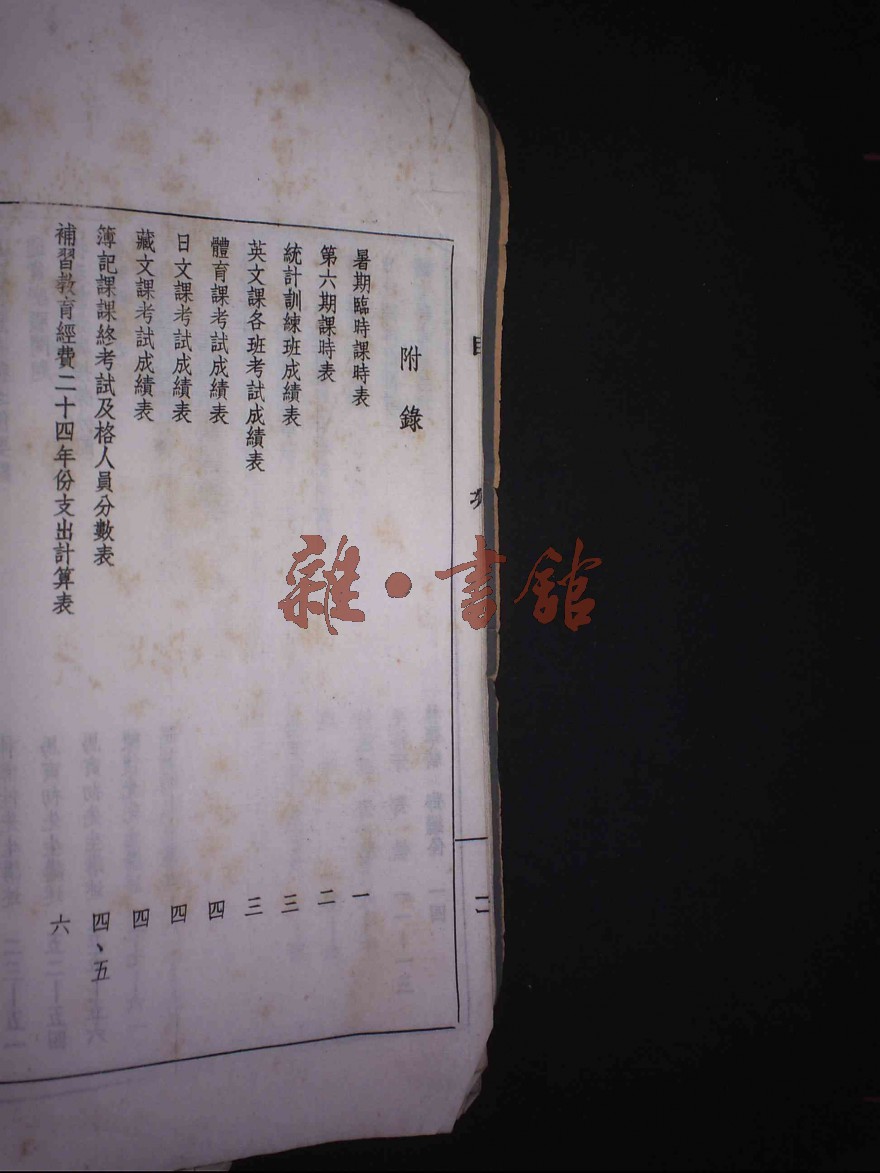 目次
二
附錄
暑期臨時課時表 一
第六期課時表 二
統計訓練班成績表 三
英文課各班考試成績表 三
體育課考試成績表 四
日文課考試成績表 四
藏文課考試成績表 四
簿記課課終考試及格人員分數表 四、五
補習教育經費二十四年份支出計算表 六
雜·書館